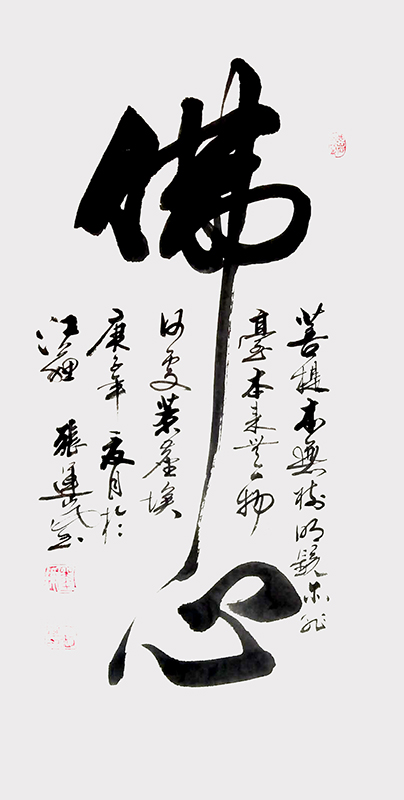 佛心
菩提本無樹明鏡亦非
臺本来無一物
何處惹塵埃
庚子年夏月於
江蘇 張